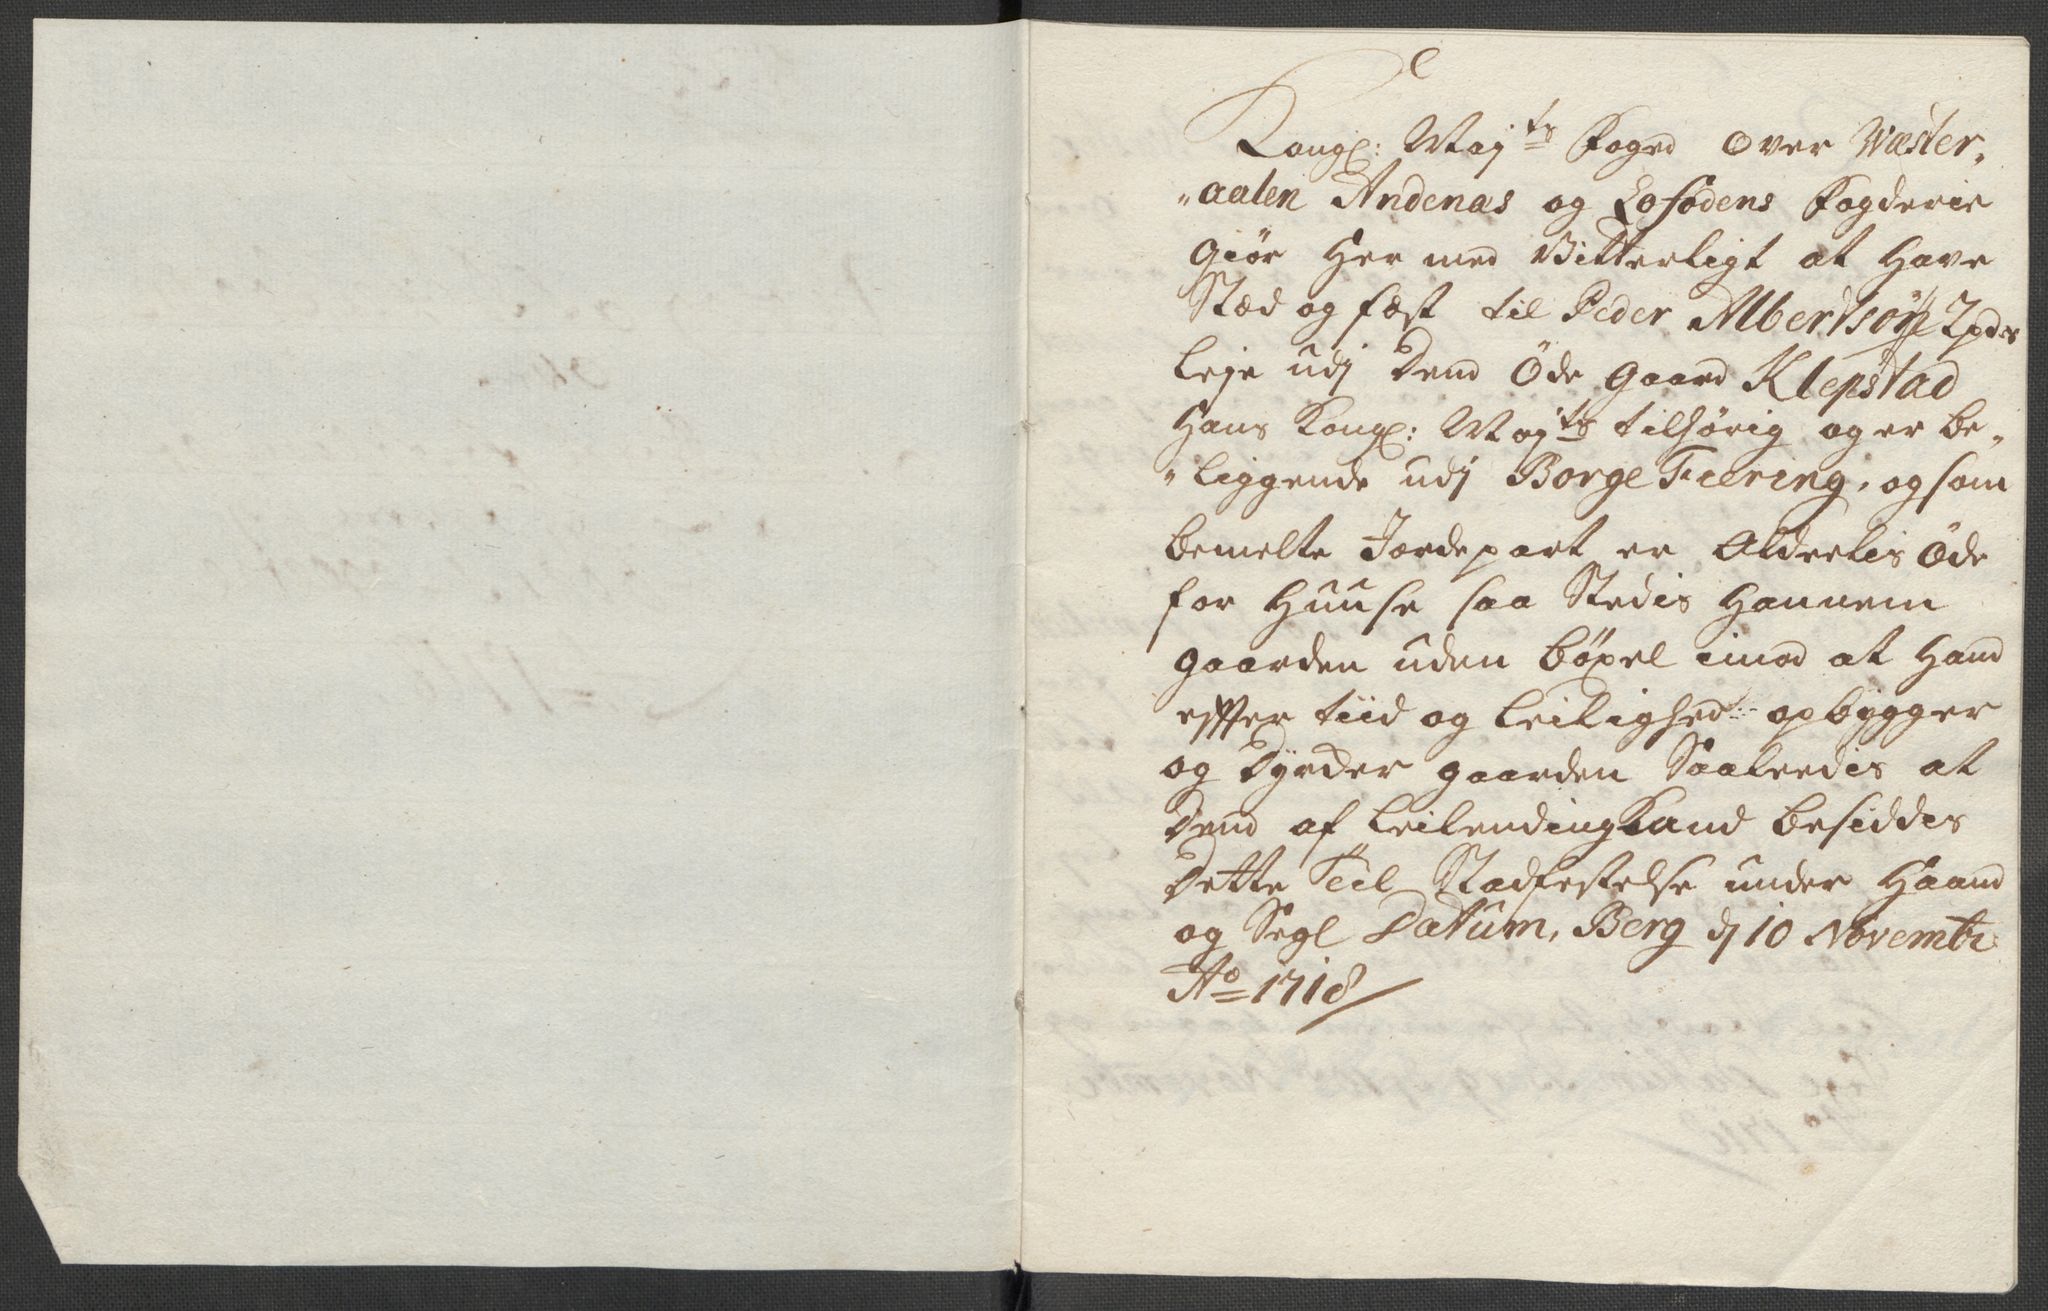 Kongl: Maj^ts Foged over Wæster„
„aalen Andenæs og Lofodens Fogderie
Giør Her med Vitterligt at Have
Stæd og fæst til Peder Albertsøn 2 pd^s
leje udj dend Öde Gaard Klepstad
Hans Kongl: Maj^ts tilhørig, og er be„
„liggende udj Borge Fiering, og som
bemelte Jordepart er Alderlis Öde
for Huuse saa Stedis Hannem
gaarden uden böxel imod at Hand
effter tiid og leilighed opbygger
og dyrder gaarden Saaledis at
dend af leilending Kand besiddis
dette Teil Stadfestelse under Haand
og Segl Datum, Berg dj 10 Novembr:
A^o= 1718/